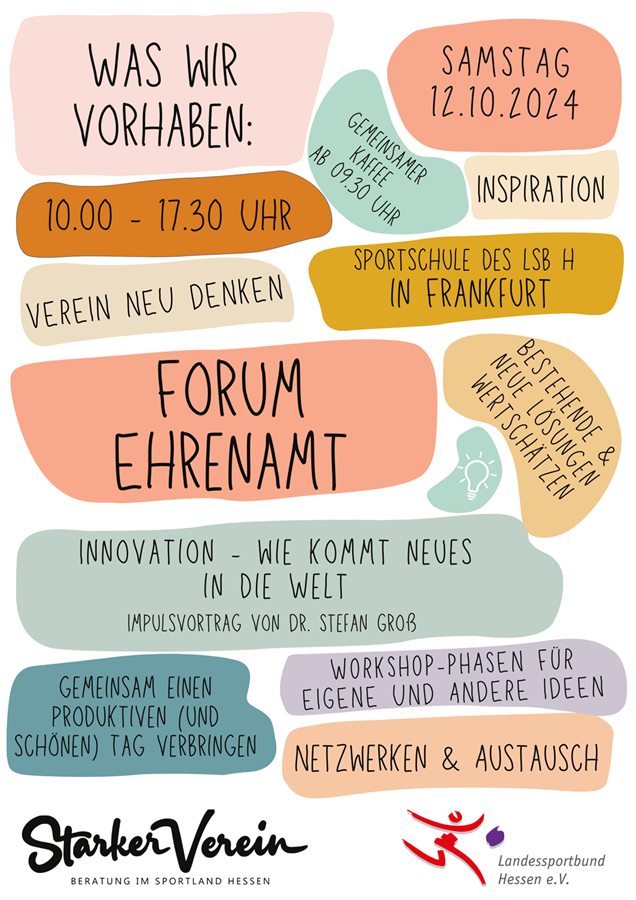 WAS WIR
VORHABEN:
SAMSTAG
12.10.2024
GEMEINSAMER
KAFFEE
AB 09.30 UHR
INSPIRATION
10.00 - 17.30 UHR
SPORTSCHULE DES LSB H
IN FRANKFURT
VEREIN NEU DENKEN
FORUM
EHRENAMT
BESTEHENDE &
NEUE LÖSUNGEN
WERTSCHÄTZEN
INNOVATION - WIE KOMMT NEUES
IN DIE WELT
IMPULSVORTRAG VON DR. STEFAN GROß
GEMEINSAM EINEN
PRODUKTIVEN (UND
SCHÖNEN) TAG VERBRINGEN
WORKSHOP-PHASEN FÜR
EIGENE UND ANDERE IDEEN
NETZWERKEN & AUSTAUSCH
Starker Verein
BERATUNG IM SPORTLAND HESSEN
Landessportbund
Hessen e.V.